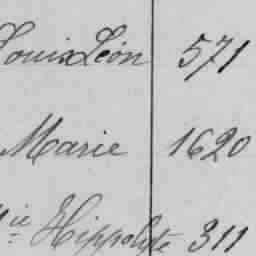 Louis Léon 571
Marie 1620
ie Hippolyte 311